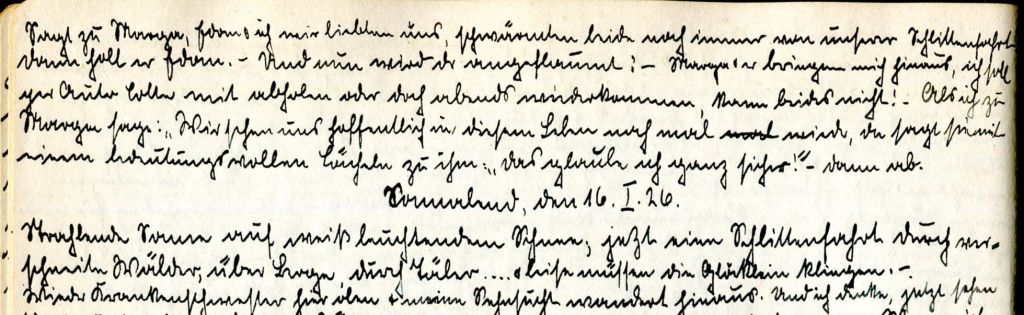 Sagt zu Marga, Edom & ich wir liebten uns, schwärmten beide noch immer von unserer Schlittenfahrt
dann holt er Edam. – Und nun wird er angeflaumt! – Marga & er bringen mich hinaus, ich soll
per Auto Lotte mit abholen oder doch abends wiederkommen, kann beides nicht! – Als ich zu
Marga sage: „Wir sehen uns hoffentlich in diesem Leben noch mal wieder, da sagt sie mit
einem bedeutungsvollen Lächeln zu ihm: „Das glaube ich ganz sicher!" – dann ab.
Sonnabend, den 16. I. 26.
Strahlende Sonne auf weiß leuchtendem Schnee; jetzt eine Schlittenfahrt durch ver-
schneite Wälder, über Berge durch Täler .... & leise müssen die Glöcklein klingen. –
Wieder Krankenschwester hier oben & meine Sehnsucht wandert hinaus. Und ich denke, jetzt sehen